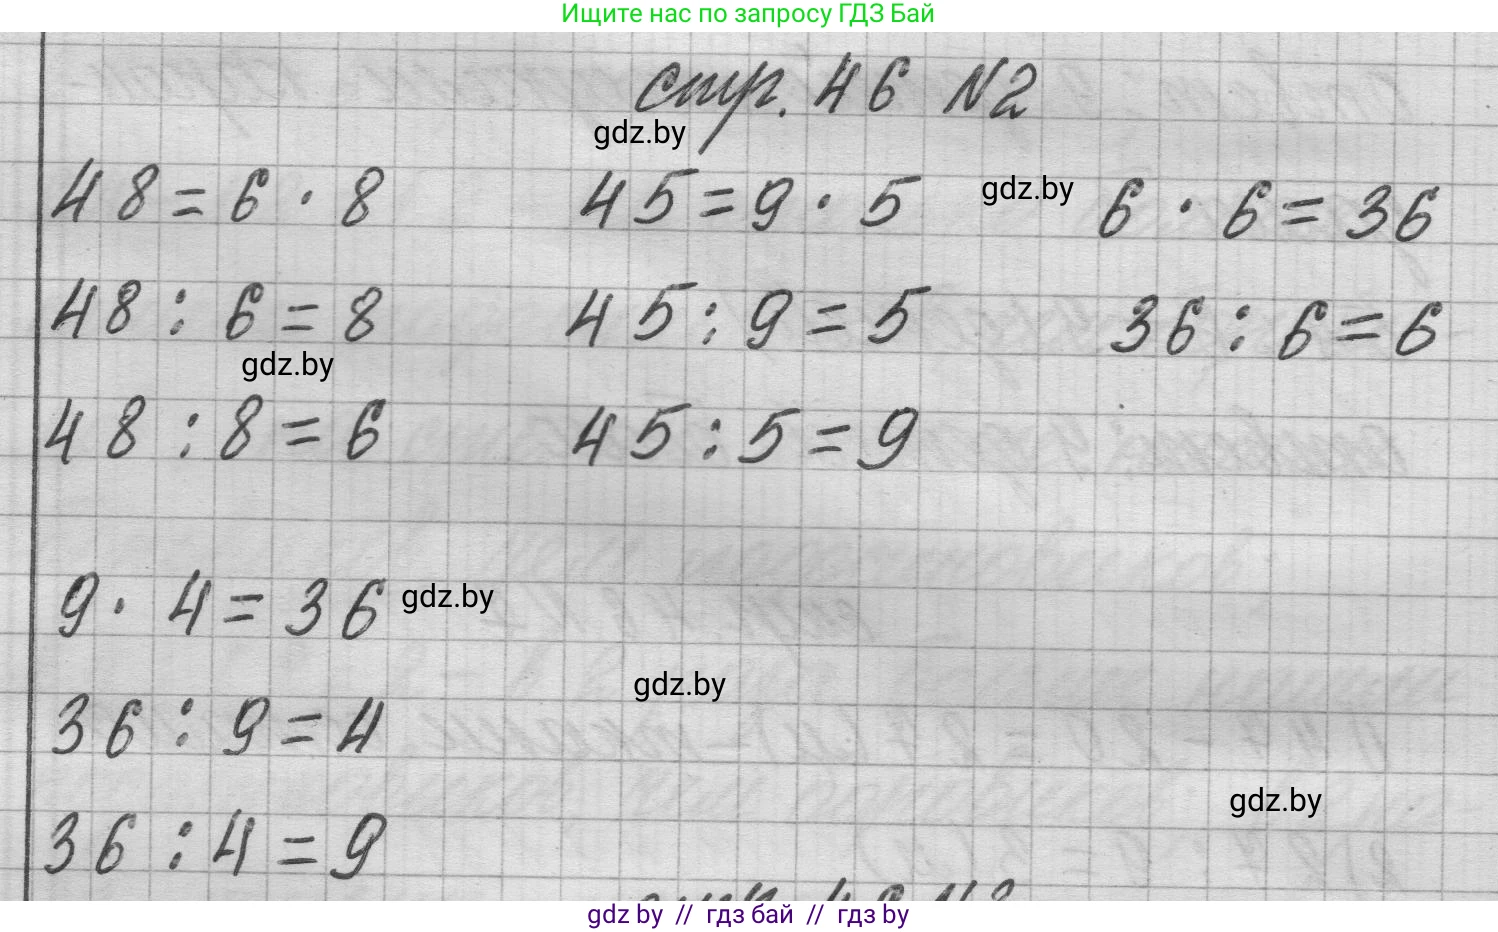 Ищите нас по запросу ГДЗ Бай
стр. 46 N2
gdz.by
48=6·8 45=9·5 gdz.by 6·6=36
48:6=8 45:9=5 36:6=6
gdz.by
48:8=6 45:5=9
9·4=36 gdz.by
gdz.by
36:9=4
gdz.by
36:4=9
gdz by // гдз бай // гдз by